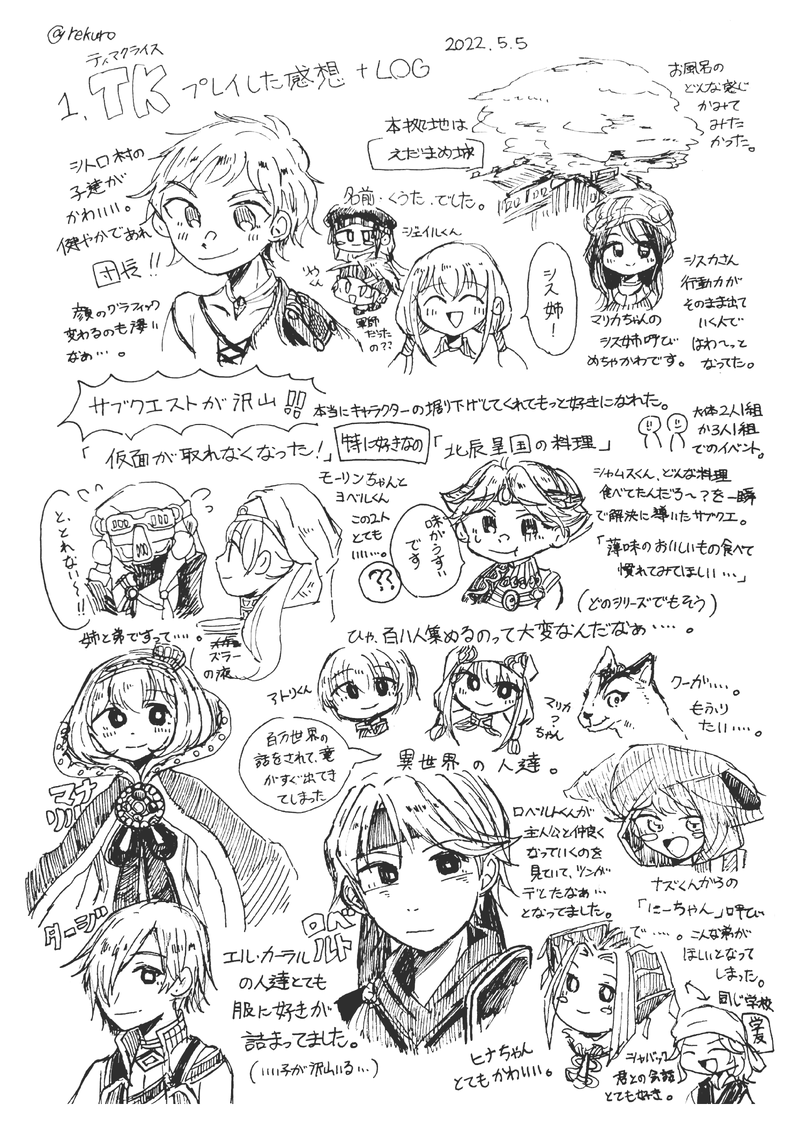 @rekuro
2022.5.5
ティアクライス
1. TK プレイした感想 + LOG
お風呂の
どんな感じ
かみて
みた
かった。
本拠地は
えだまめ城
シトロ村の
子達が
かわいい。
健やかであれ
団長!!
顔のグラフィック
変わるのも凄い
なぁ…。
名前・くうた・でした。
ジェイルくん
リウ
くん
軍師
だった
の??
シス姉!
マリカちゃんの
シス姉呼び
めちゃかわです。
シスカさん
行動力が
そのまま出て
いく人で
はわ〜っと
なってた。
サブクエストが沢山!!
本当にキャラクターの堀り下げしてくれてもっと好きになれた。
大体2人1組
か3人1組
でのイベント。
「仮面が取れなくなった!」
特に好きなの
「北辰皇国の料理」
と、とれない〜!!
モーリンちゃんと
ヨベルくん
この2人
とても
いい…。
??
味がうすい
です
シャムスくん、どんな料理
食べてたんだろ〜?を一瞬
で解決に導いたサブクエ。
「薄味のおいしいもの食べて
慣れてみてほしい…」
(どのシリーズでもそう)
姉と弟ですって…。
ズラー
の液
ひゃ、百八人集めるのって大変なんだなぁ…。
アトリくん
マリカ
?
ちゃん
クーガ…。
もふり
たい…。
百万世界の
話をされて、竜
がすぐ出てき
てしまった
異世界の人達。
マナリル
ロベルトくんが
主人公と仲良く
なっていくのを
見ていて、ツンが
デとたなぁ…
となってました。
ナズくんからの
「にーちゃん」呼び
で…。こんな弟が
ほしいとなって
しまった。
タージ
ロベルト
エル・カーラル
の人達とても
服に好きが
詰まってました。
(いい子が沢山いる…)
ヒナちゃん
とてもかわいい。
同じ学校
学友
シャバック
君との会話
とても好き。